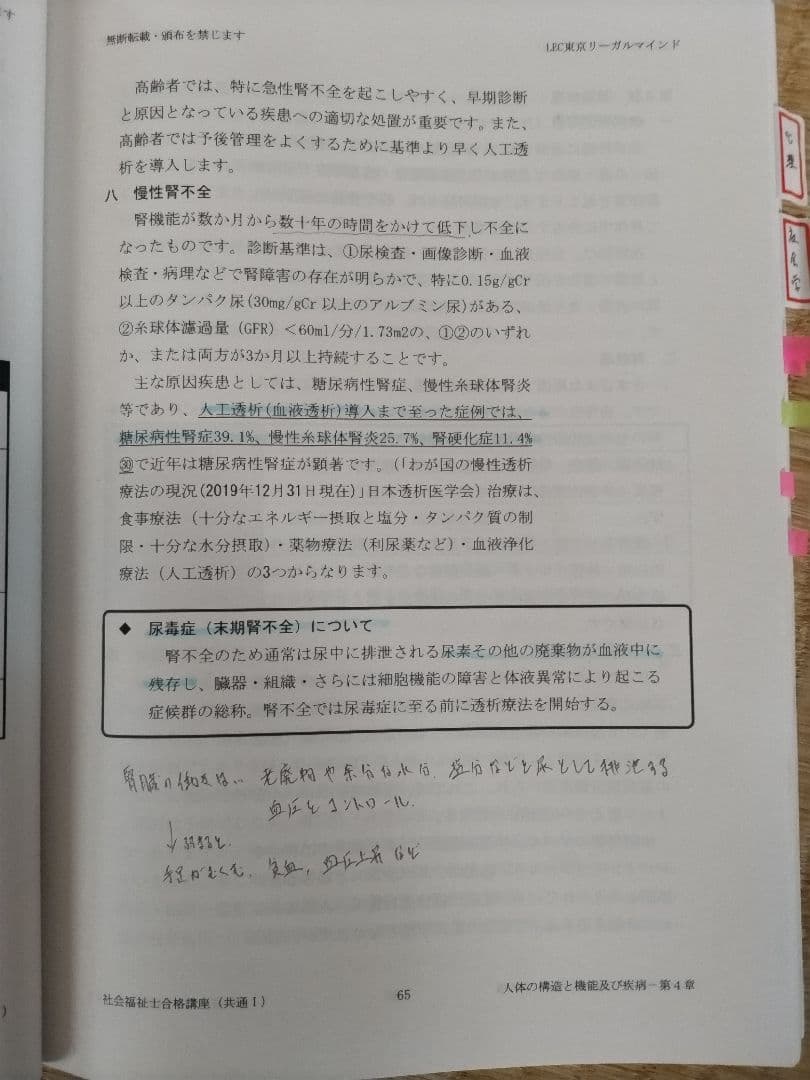 無断転載・頒布を禁じます
LEC東京リーガルマインド
高齢者では、特に急性腎不全を起こしやすく、早期診断
と原因となっている疾患への適切な処置が重要です。また、
高齢者では予後管理をよくするために基準より早く人工透
析を導入します。
八 慢性腎不全
腎機能が数か月から数十年の時間をかけて低下し不全に
なったものです。診断基準は、①尿検査・画像診断・血液
検査・病理などで腎障害の存在が明らかで、特に0.15g/gCr
以上のタンパク尿(30mg/gCr 以上のアルブミン尿)がある、
②糸球体濾過量（GFR）＜60ml/分/1.73m2の、①②のいずれ
か、または両方が3か月以上持続することです。
主な原因疾患としては、糖尿病性腎症、慢性糸球体腎炎
等であり、人工透析(血液透析)導入まで至った症例では、
糖尿病性腎症39.1%、慢性糸球体腎炎25.7%、腎硬化症11.4%
㉚で近年は糖尿病性腎症が顕著です。(「わが国の慢性透析
療法の現況(2019年12月31日現在)」日本透析医学会) 治療は、
食事療法（十分なエネルギー摂取と塩分・タンパク質の制
限・十分な水分摂取）・薬物療法（利尿薬など）・血液浄化
療法（人工透析）の3つからなります。
◆ 尿毒症（末期腎不全）について
腎不全のため通常は尿中に排泄される尿素その他の廃棄物が血液中に
残存し、臓器・組織・さらには細胞機能の障害と体液異常により起こる
症候群の総称。腎不全では尿毒症に至る前に透析療法を開始する。
腎臓の働きは、老廃物や余分な水分、塩分などを尿として排泄する
血圧をコントロール.
↓弱まると.
手足がむくむ、貧血、血圧上昇など
社会福祉士合格講座（共通Ⅰ）
65
人体の構造と機能及び疾病－第４章